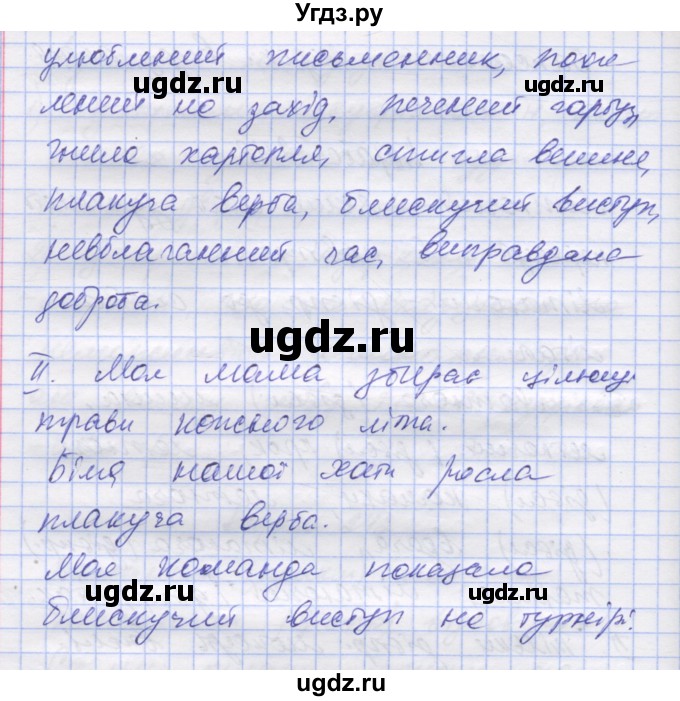 Угдз.ру
улюблений письменник, похи
лений на захід, печений гарбуз,
гнила картопля, стигла вишня,
плакуча верба, блискучий виступ,
невблаганний час, виправдана
доброта.
ugdz.ru ugdz.ru
ugdz.ru
II. Моя мама збирає цілющі
трави кожного літа.
Біля нашої хати росла
плакуча верба.
Моя команда показала
блискучий виступ на турнірі.
ugdz.ru ugdz.ru
ugdz.ru